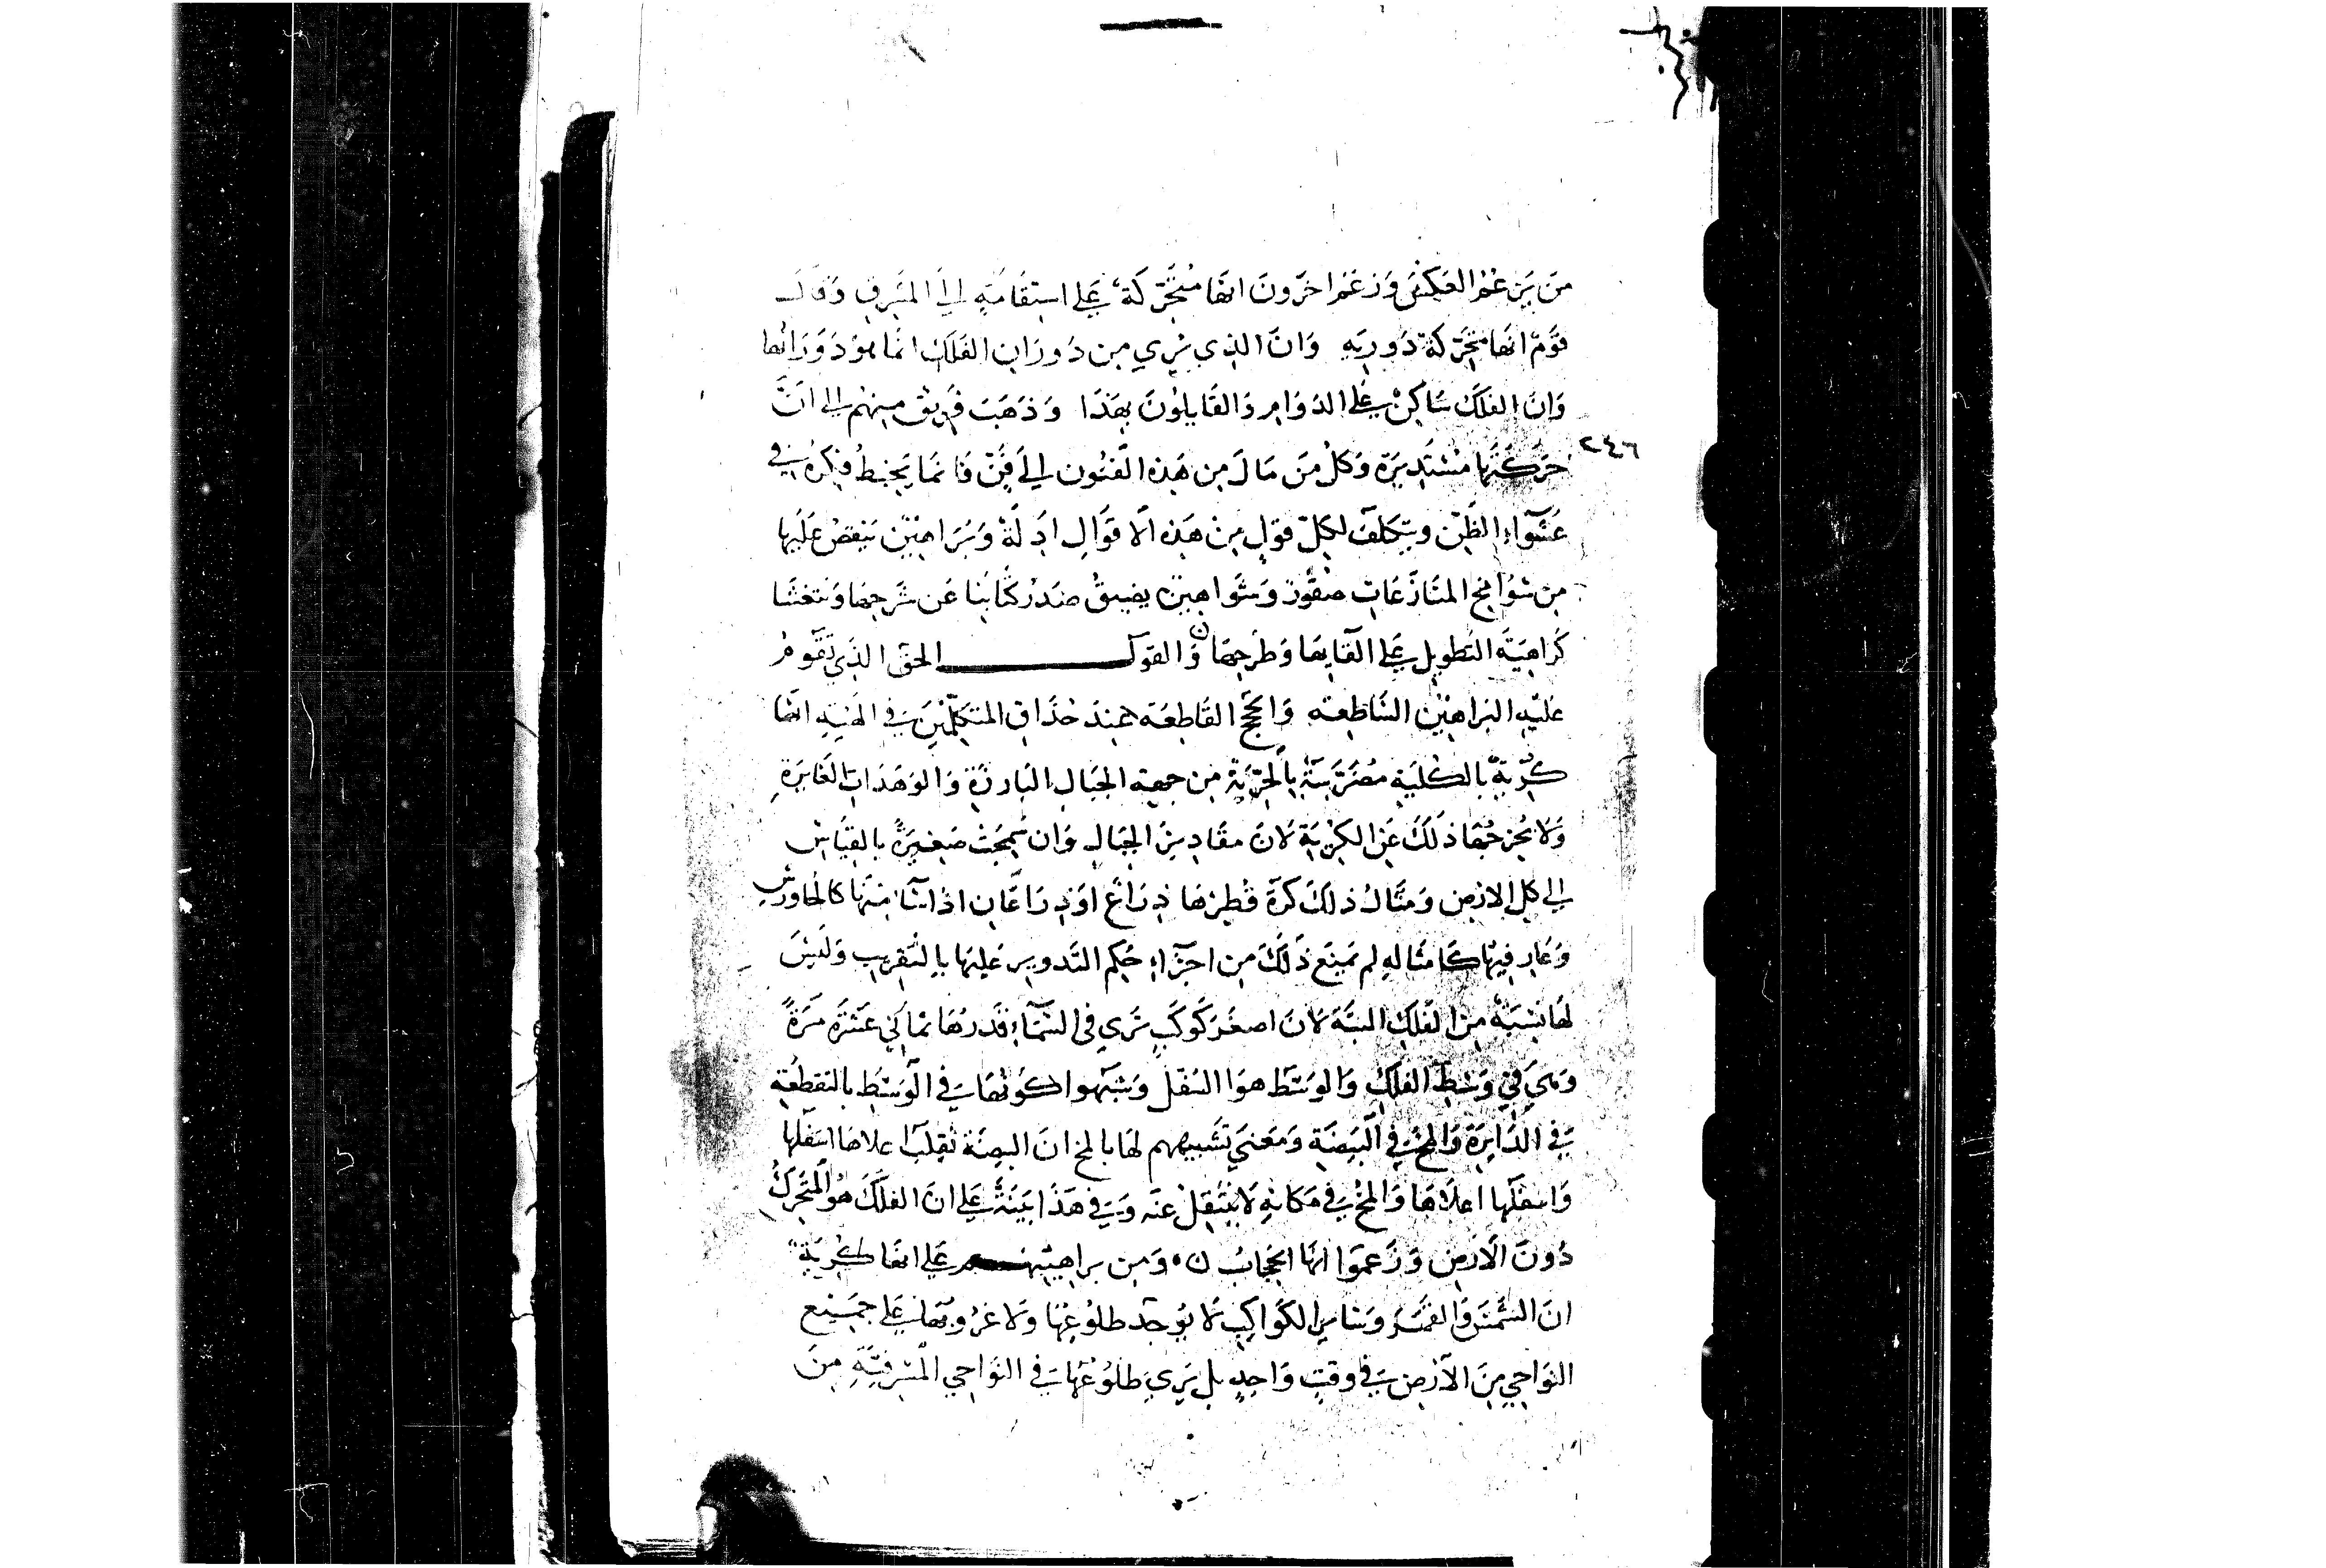 من يزعم العكس وزعم اخرون انها متحركة على استقامة الى المشرق وقال
قوم انها متحركة دورية وان الذي يرى من دوران الفلك انما هو دورانها
وان الفلك ساكن على الدوام والقايلون بهذا وذهب فريق منهم الى ان
٢٤٦
حركتها مستديرة وكل من مال من هذه الفنون الى فن فانما يخبط فكره في
عشواء الظن ويتكلف لكل قول من هذه الاقوال ادلة وبراهين ينقض عليها
من شوامخ المنازعات صقور وشواهين يضيق صدر كتابنا عن شرحها
كراهية التطويل على القايها وطرحها ن والقول الحق الذي تقوم
عليه البراهين الساطعة والحجج القاطعة عند حذاق المتكلمين في الهيئة انها
كرية بالكلية مضرسة بالجزية من جهة الجبال البارزة والوهدات الغايرة
ولا يخرجها ذلك عن الكرية لان مقادير الجبال وان شمخت صغيرة بالقياس
الى كل الارض ومثال ذلك كرة قطرها ذراع او ذراعان اذا نتا منها كالجاورش
وغار فيها كامثاله لم يمنع ذلك من اجراء حكم التدوير عليها بالتقريب وليس
لها نسبة من الفلك البتة لان اصغر كوكب يرى في السماء قدرها ثماني عشرة مرة
وهي في وسط الفلك والوسط هو السفل وشبهوا كونها في الوسط بالنقطة
في الدايرة والمخ في البيضة ومعنى تشبيههم لها بالمخ ان البيضة تقلب اعلاها اسفلها
واسفلها اعلاها والمخ في مكانه لا ينتقل عنه وفي هذا بينة على ان الفلك هو المتحرك
دون الارض وزعموا انها الحجاب ن ومن براهينهم على انها كرية
ان الشمس والقمر وساير الكواكب لا يوجد طلوعها ولا غروبها على جميع
النواحي من الارض في وقت واحد بل يرى طلوعها في النواحي المشرقية من